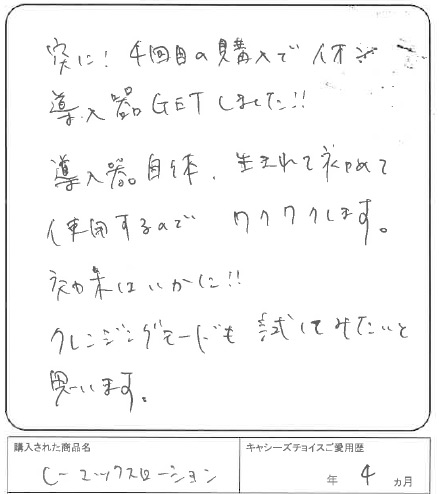 突に! 4回目の購入でイオン
導入器GETしました!!
導入器自体、生まれて初めて
使用するので ワクワクします。
効果はいかに!!
クレンジングモードも試してみたいと
思います。
購入された商品名
C-マックスローション
キャシーズチョイスご愛用歴
年 4 ヵ月